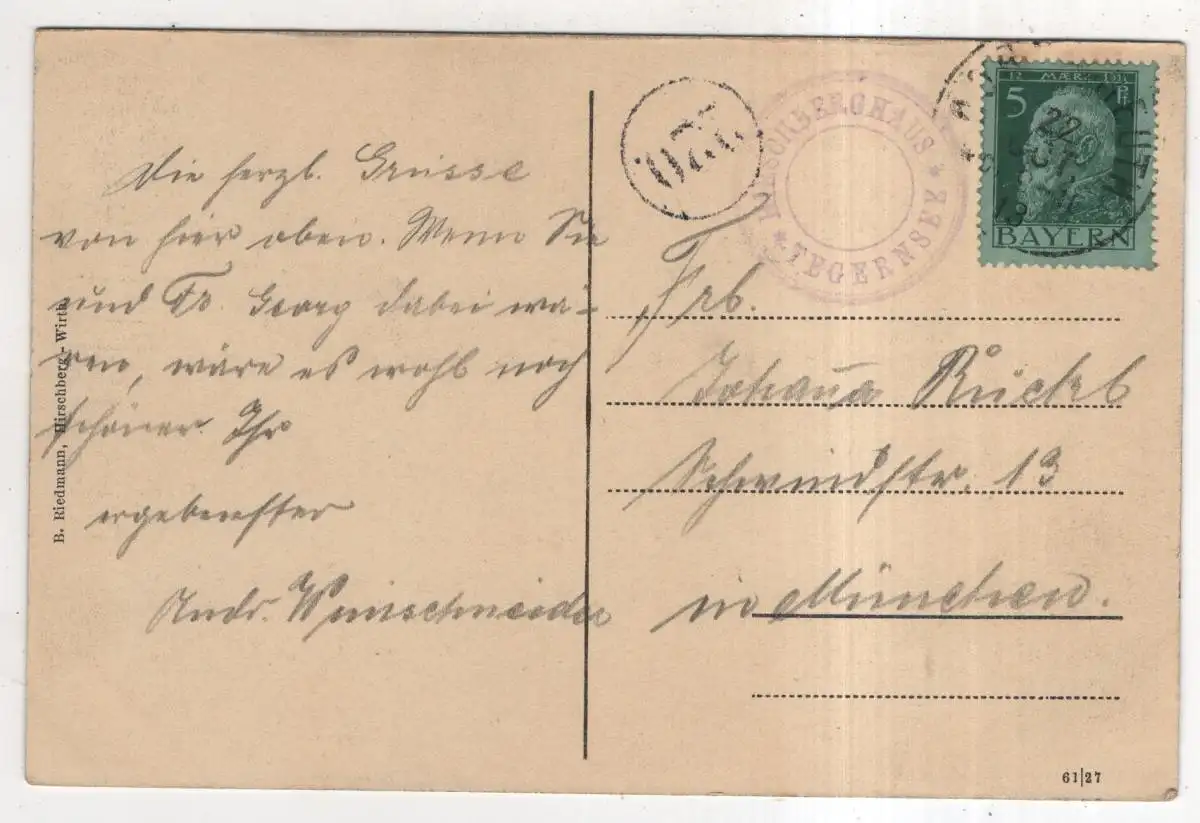 Die herzl. Grüsse
von hier oben. Wenn Sie
und Fr. Georg dabei wä-
ren, wäre es wohl noch
schöner. Ihr
ergebenster
Andr. Wimschneider
B. Riedmann, Hirschberg-Wirth
HIRSCHBERGHAUS
* TEGERNSEE *
12 MÆRZ 1911
5 Pf
BAYERN
22
Frl.
Johanna Rückl
Schwindstr. 13
in München.
61|27